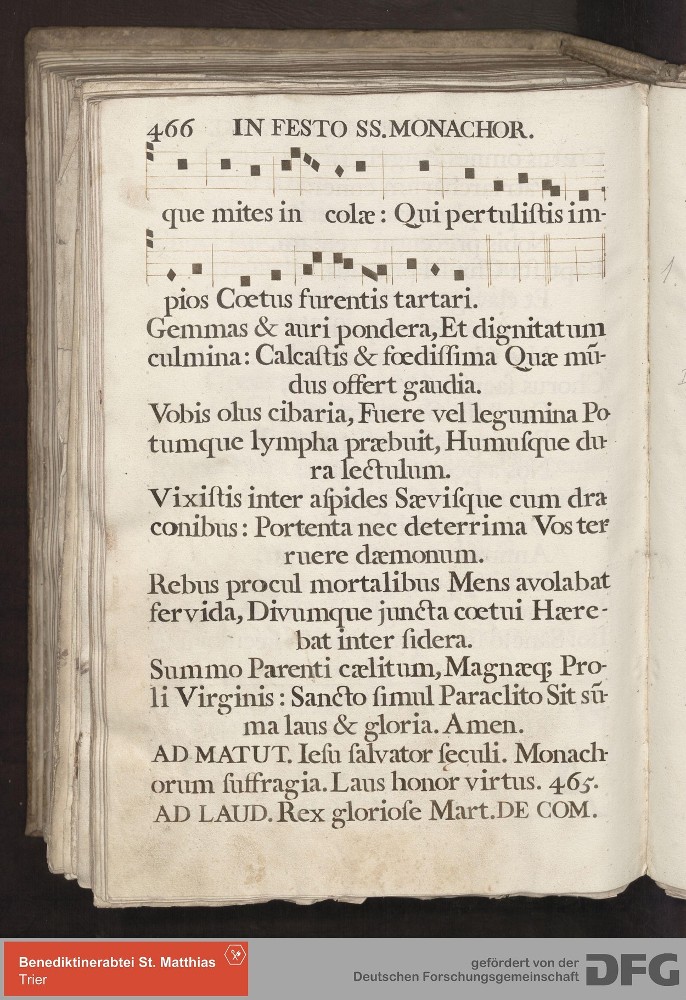 466 IN FESTO SS. MONACHOR.
que mites in colæ: Qui pertuliſtis im-
pios Cœtus furentis tartari.
Gemmas & auri pondera, Et dignitatum
culmina: Calcaſtis & fœdiſſima Quæ mũ-
dus offert gaudia.
Vobis olus cibaria, Fuere vel legumina Po-
tumque lympha præbuit, Humuſque du-
ra lectulum.
Vixiſtis inter aſpides Sæviſque cum dra
conibus: Portenta nec deterrima Vos ter
ruere dæmonum.
Rebus procul mortalibus Mens avolabat
fervida, Divumque juncta cœtui Hære-
bat inter ſidera.
Summo Parenti cælitum, Magnæq; Pro-
li Virginis: Sancto ſimul Paraclito Sit sũ-
ma laus & gloria. Amen.
AD MATUT. Ieſu ſalvator ſęculi. Monach-
orum ſuffragia. Laus honor virtus. 465.
AD LAUD. Rex glorioſe Mart. DE COM.
1.
Benediktinerabtei St. Matthias
Trier
gefördert von der
Deutschen Forschungsgemeinschaft
DFG